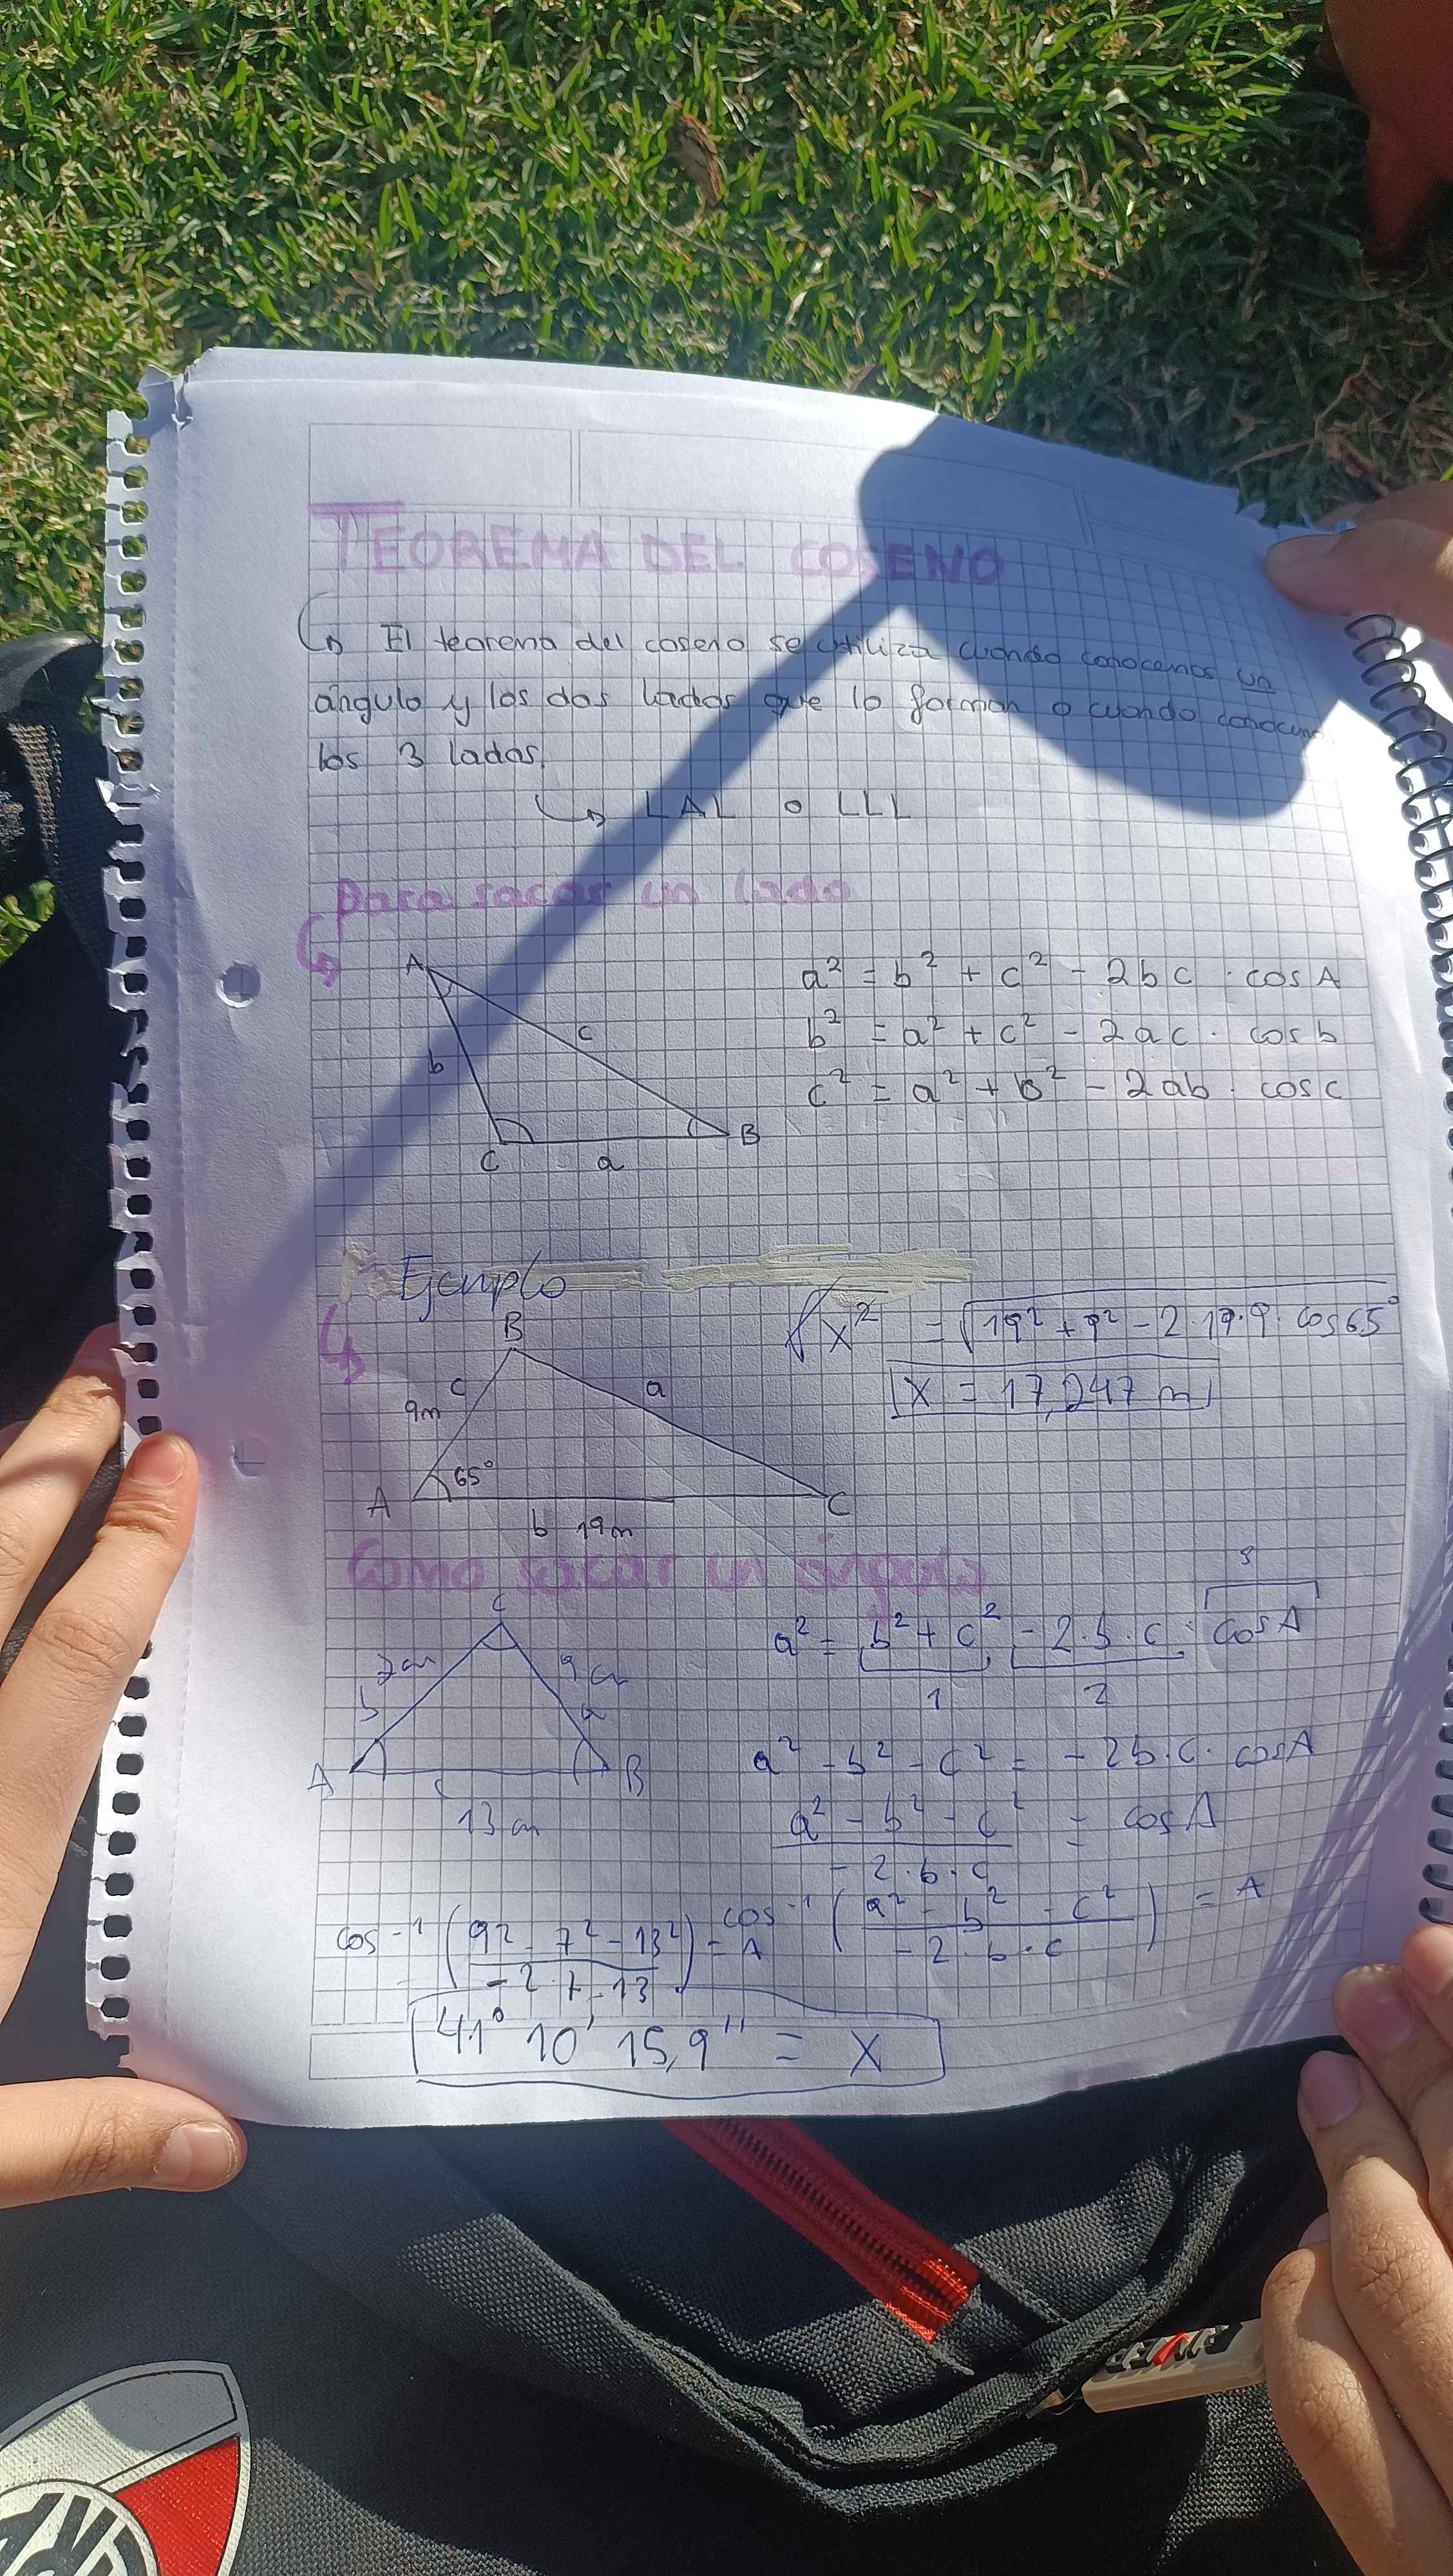 TEOREMA DEL COSENO
↳ El teorema del coseno se utiliza cuando conocemos un
ángulo y los dos lados que lo forman o cuando conocemos
los 3 lados.
↳ LAL o LLL
para sacar un lado
A
c
b
C
a
B
a² = b² + c² - 2bc · cos A
b² = a² + c² - 2ac · cos b
c² = a² + b² - 2ab · cos c
Ejemplo
B
c
9m
a
65°
A
b 19m
C
√x² = √19² + 9² - 2·19·9· cos 65°
x = 17,247 m
Como sacar un ángulo
C
7cm
9 cm
b
a
A
c
B
13 cm
3
a² = b² + c² - 2·b·c · cos A
1 2
a² - b² - c² = - 2b·c· cos A
a² - b² - c² = cos A
- 2·b·c
cos⁻¹ (a² - b² - c²) = A
- 2·b·c
cos⁻¹ (9² - 7² - 13²) = A
- 2·7·13
41° 10' 15,9'' = x
RIVER